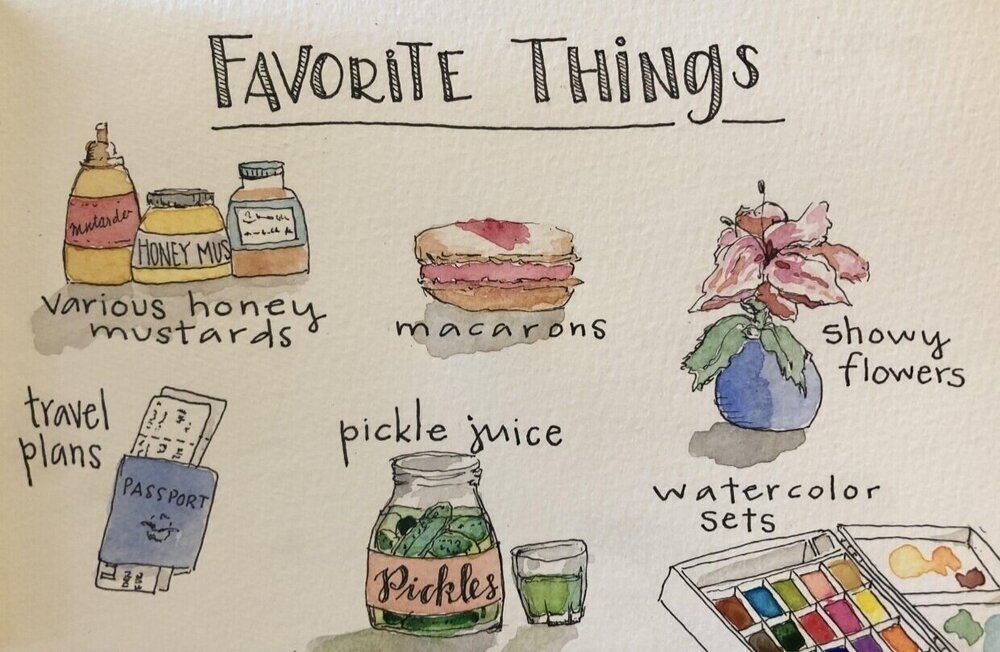 FAVORITE THINGS
mutarde
HONEY MUS
various honey
mustards
macarons
showy
flowers
travel
plans
PASSPORT
pickle juice
Pickles
watercolor
sets